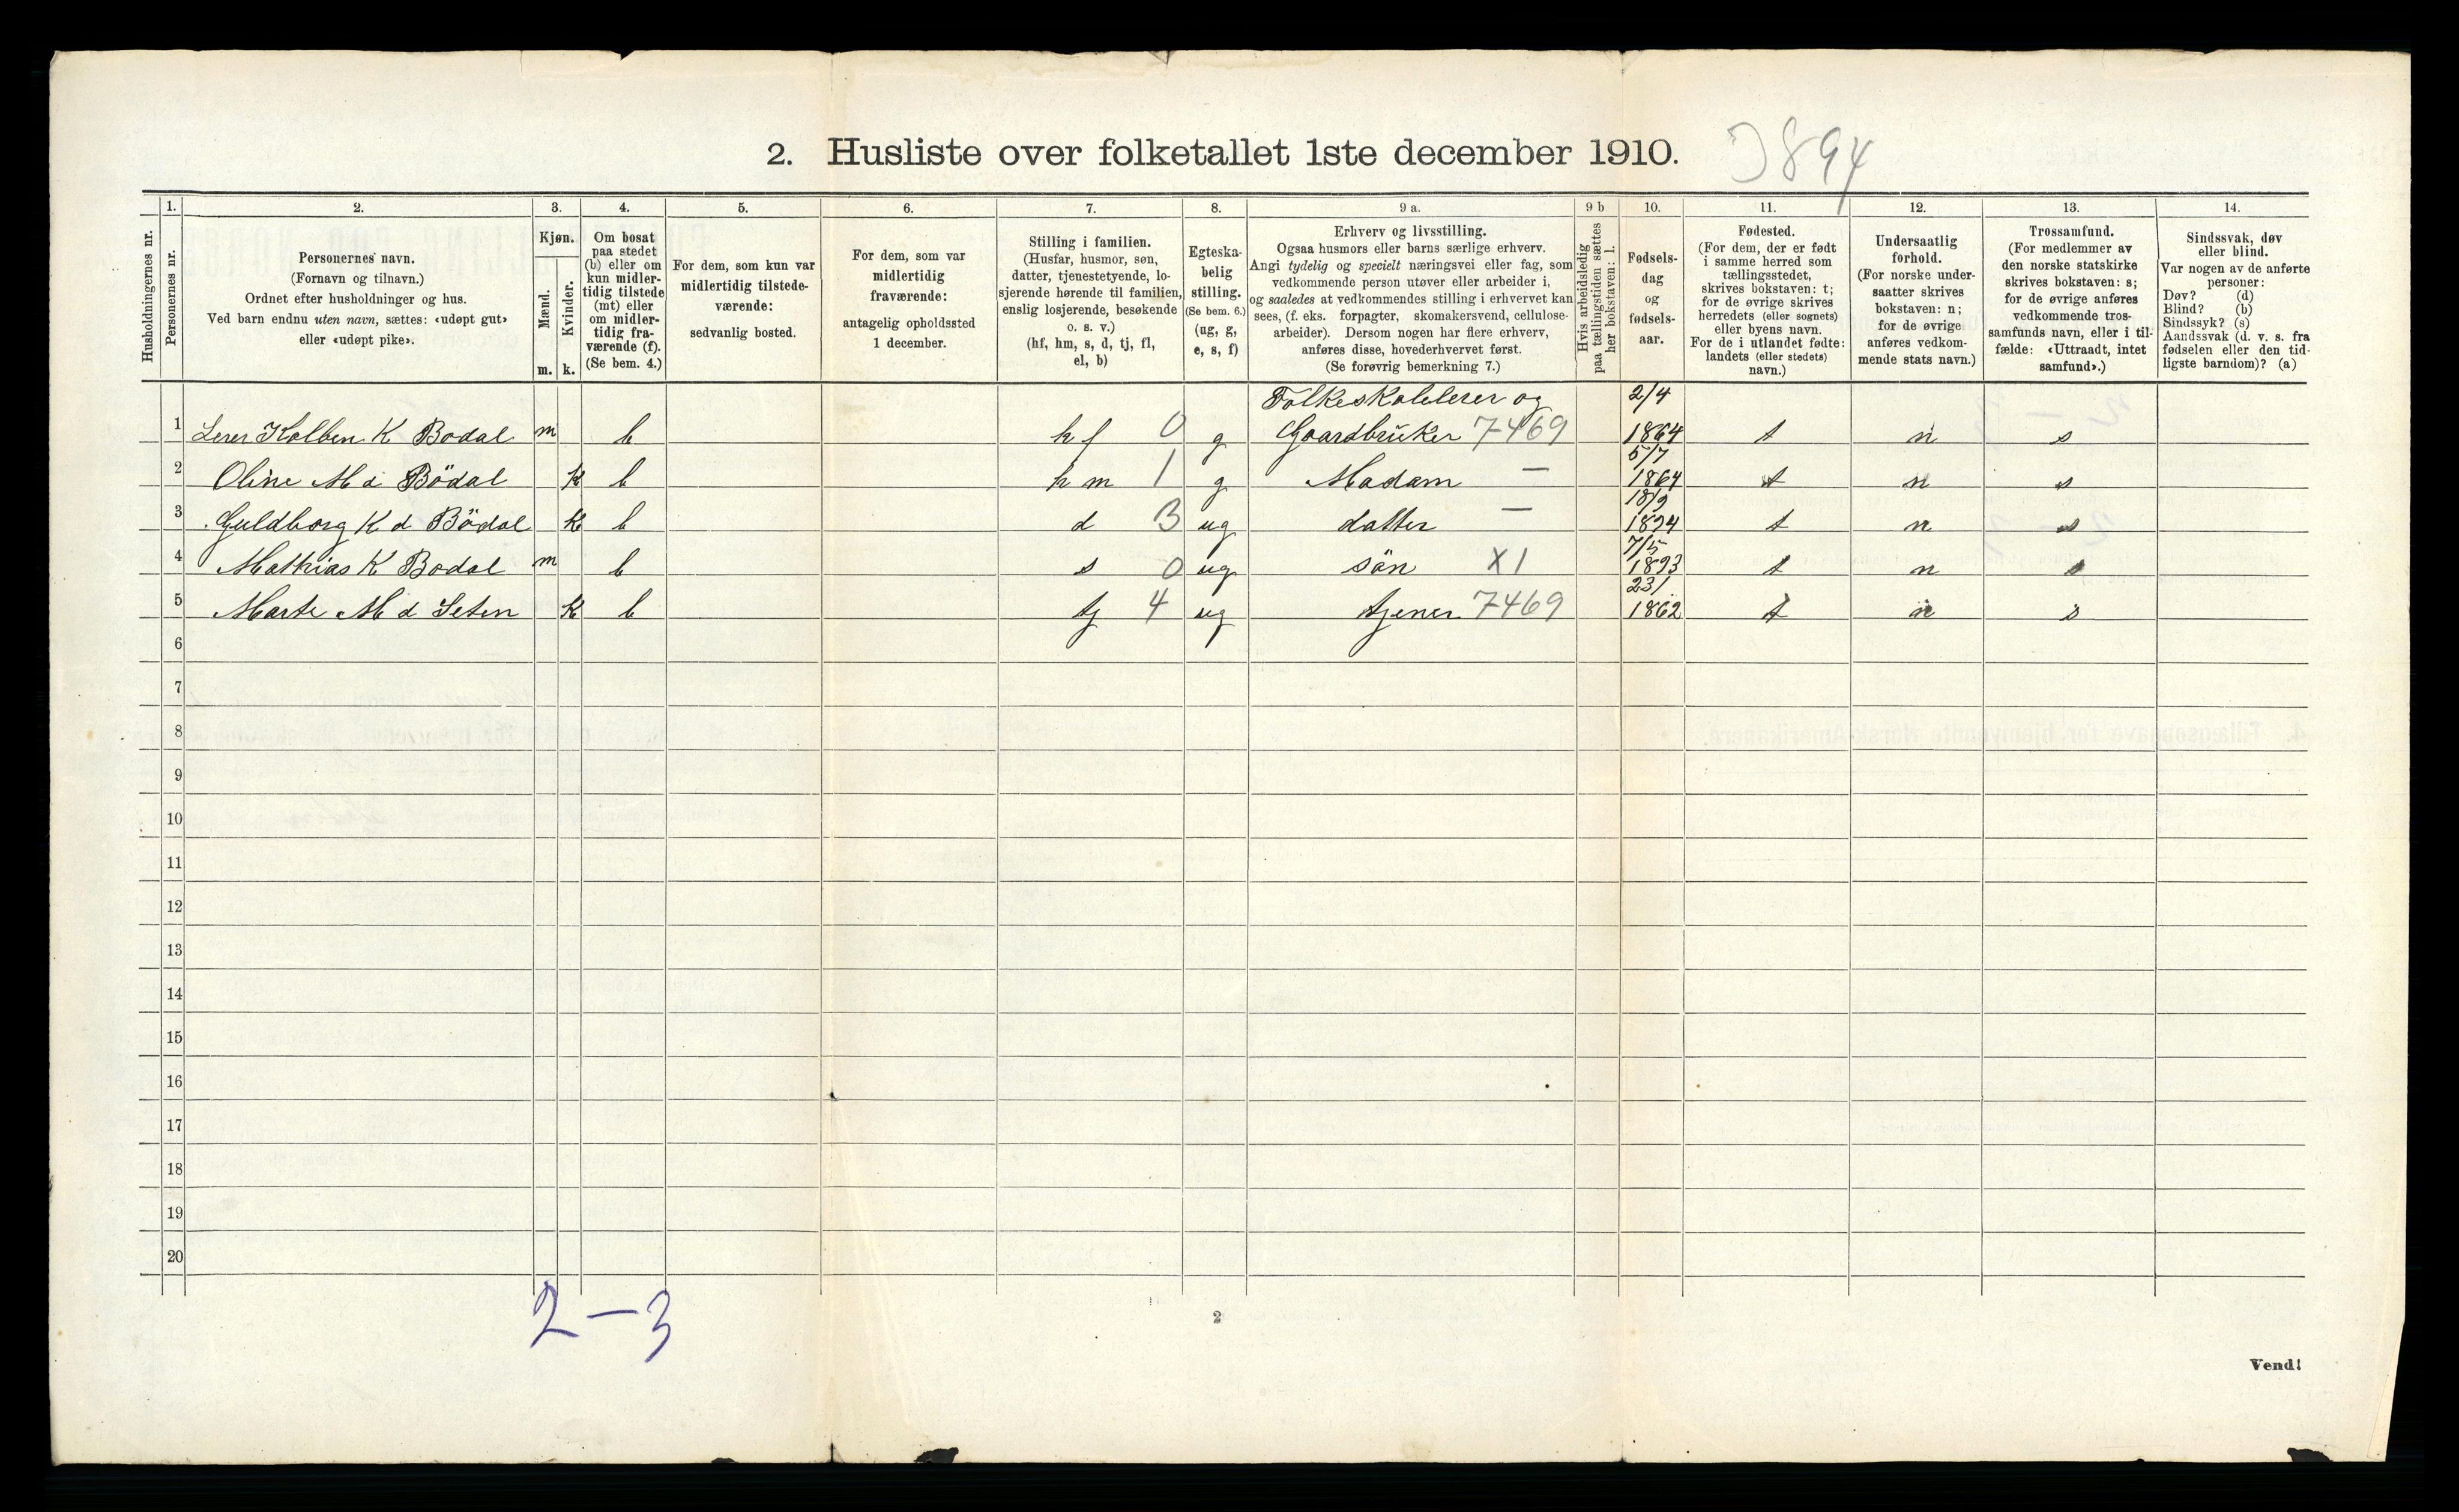 2. Husliste over folketallet 1ste december 1910.
1. 2. 3. 4. 5. 6. 7. 8. 9 a. 9 b 10. 11. 12. 13. 14.
Husholdningernes nr.
Personernes nr.
Personernes navn.
(Fornavn og tilnavn.)
Ordnet efter husholdninger og hus.
Ved barn endnu uten navn, sættes: «udøpt gut»
eller «udøpt pike».
Kjøn.
Mænd.
Kvinder.
m. k.
Om bosat
paa stedet
(b) eller om
kun midler-
tidig tilstede
(mt) eller
om midler-
tidig fra-
værende (f).
(Se bem. 4.)
For dem, som kun var
midlertidig tilstede-
værende:
sedvanlig bosted.
For dem, som var
midlertidig
fraværende:
antagelig opholdssted
1 december.
Stilling i familien.
(Husfar, husmor, søn,
datter, tjenestetyende, lo-
sjerende hørende til familien,
enslig losjerende, besøkende
o. s. v.)
(hf, hm, s, d, tj, fl,
el, b)
Egteska-
belig
stilling.
(Se bem. 6.)
(ug, g,
e, s, f)
Erhverv og livsstilling.
Ogsaa husmors eller barns særlige erhverv.
Angi tydelig og specielt næringsvei eller fag, som
vedkommende person utøver eller arbeider i,
og saaledes at vedkommendes stilling i erhvervet kan
sees, (f. eks. forpagter, skomakersvend, cellulose-
arbeider). Dersom nogen har flere erhverv,
anføres disse, hovederhvervet først.
(Se forøvrig bemerkning 7.)
Hvis arbeidsledig
paa tællingstiden sættes
her bokstaven: l.
Fødsels-
dag
og
fødsels-
aar.
Fødested.
(For dem, der er født
i samme herred som
tællingsstedet,
skrives bokstaven: t;
for de øvrige skrives
herredets (eller sognets)
eller byens navn.
For de i utlandet fødte:
landets (eller stedets)
navn.)
Undersaatlig
forhold.
(For norske under-
saatter skrives
bokstaven: n;
for de øvrige
anføres vedkom-
mende stats navn.)
Trossamfund.
(For medlemmer av
den norske statskirke
skrives bokstaven: s;
for de øvrige anføres
vedkommende tros-
samfunds navn, eller i til-
fælde: «Uttraadt, intet
samfund».)
Sindssvak, døv
eller blind.
Var nogen av de anførte
personer:
Døv? (d)
Blind? (b)
Sindssyk? (s)
Aandssvak (d. v. s. fra
fødselen eller den tid-
ligste barndom)? (a)
Folkeskolelerer og 2/4
1 Lerer Kolben K Bodal m b hf 0 g Gaardbruker 7469 1864 t n s
5/7
2 Oline M d Bödal k b hm 1 g Madam — 1864 t n s
18/9
3 Guldborg K d Bödal k b d 3 ug datter — 1894 t n s
7/5
4 Mathias K Bodal m b s 0 ug sön X1 1893 t n s
5 Marte M d Seten k b tj 4 ug tjener 7469 1862 t n s
6
7
8
9
10
11
12
13
14
15
16
17
18
19
20
2 — 3
2
Vend!